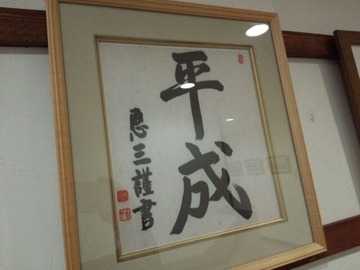 平成
恵三謹書